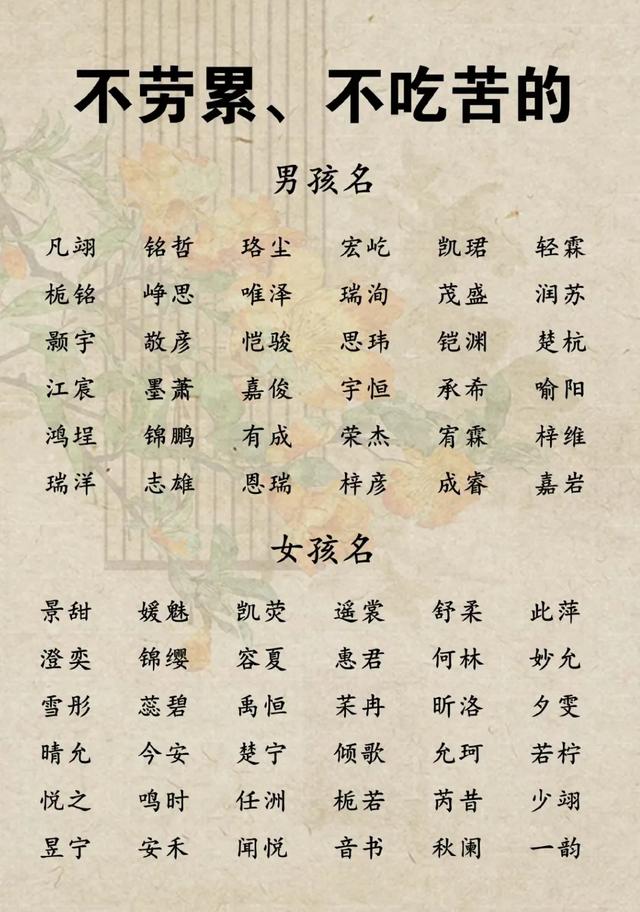 不劳累、不吃苦的
男孩名
凡翊 铭哲 珞尘 宏屹 凯珺 轻霖
栀铭 峥思 唯泽 瑞洵 茂盛 润苏
颢宇 敬彦 恺骏 思玮 铠渊 楚杭
江宸 墨萧 嘉俊 宇恒 承希 喻阳
鸿埕 锦鹏 有成 荣杰 宥霖 梓维
瑞洋 志雄 恩瑞 梓彦 成睿 嘉岩
女孩名
景甜 媛魅 凯荧 遥裳 舒柔 此萍
澄奕 锦缨 容夏 惠君 何林 妙允
雪彤 蕊碧 禹恒 茉冉 昕洛 夕雯
晴允 今安 楚宁 倾歌 允珂 若柠
悦之 鸣时 任洲 栀若 芮昔 少翊
昱宁 安禾 闻悦 音书 秋阑 一韵